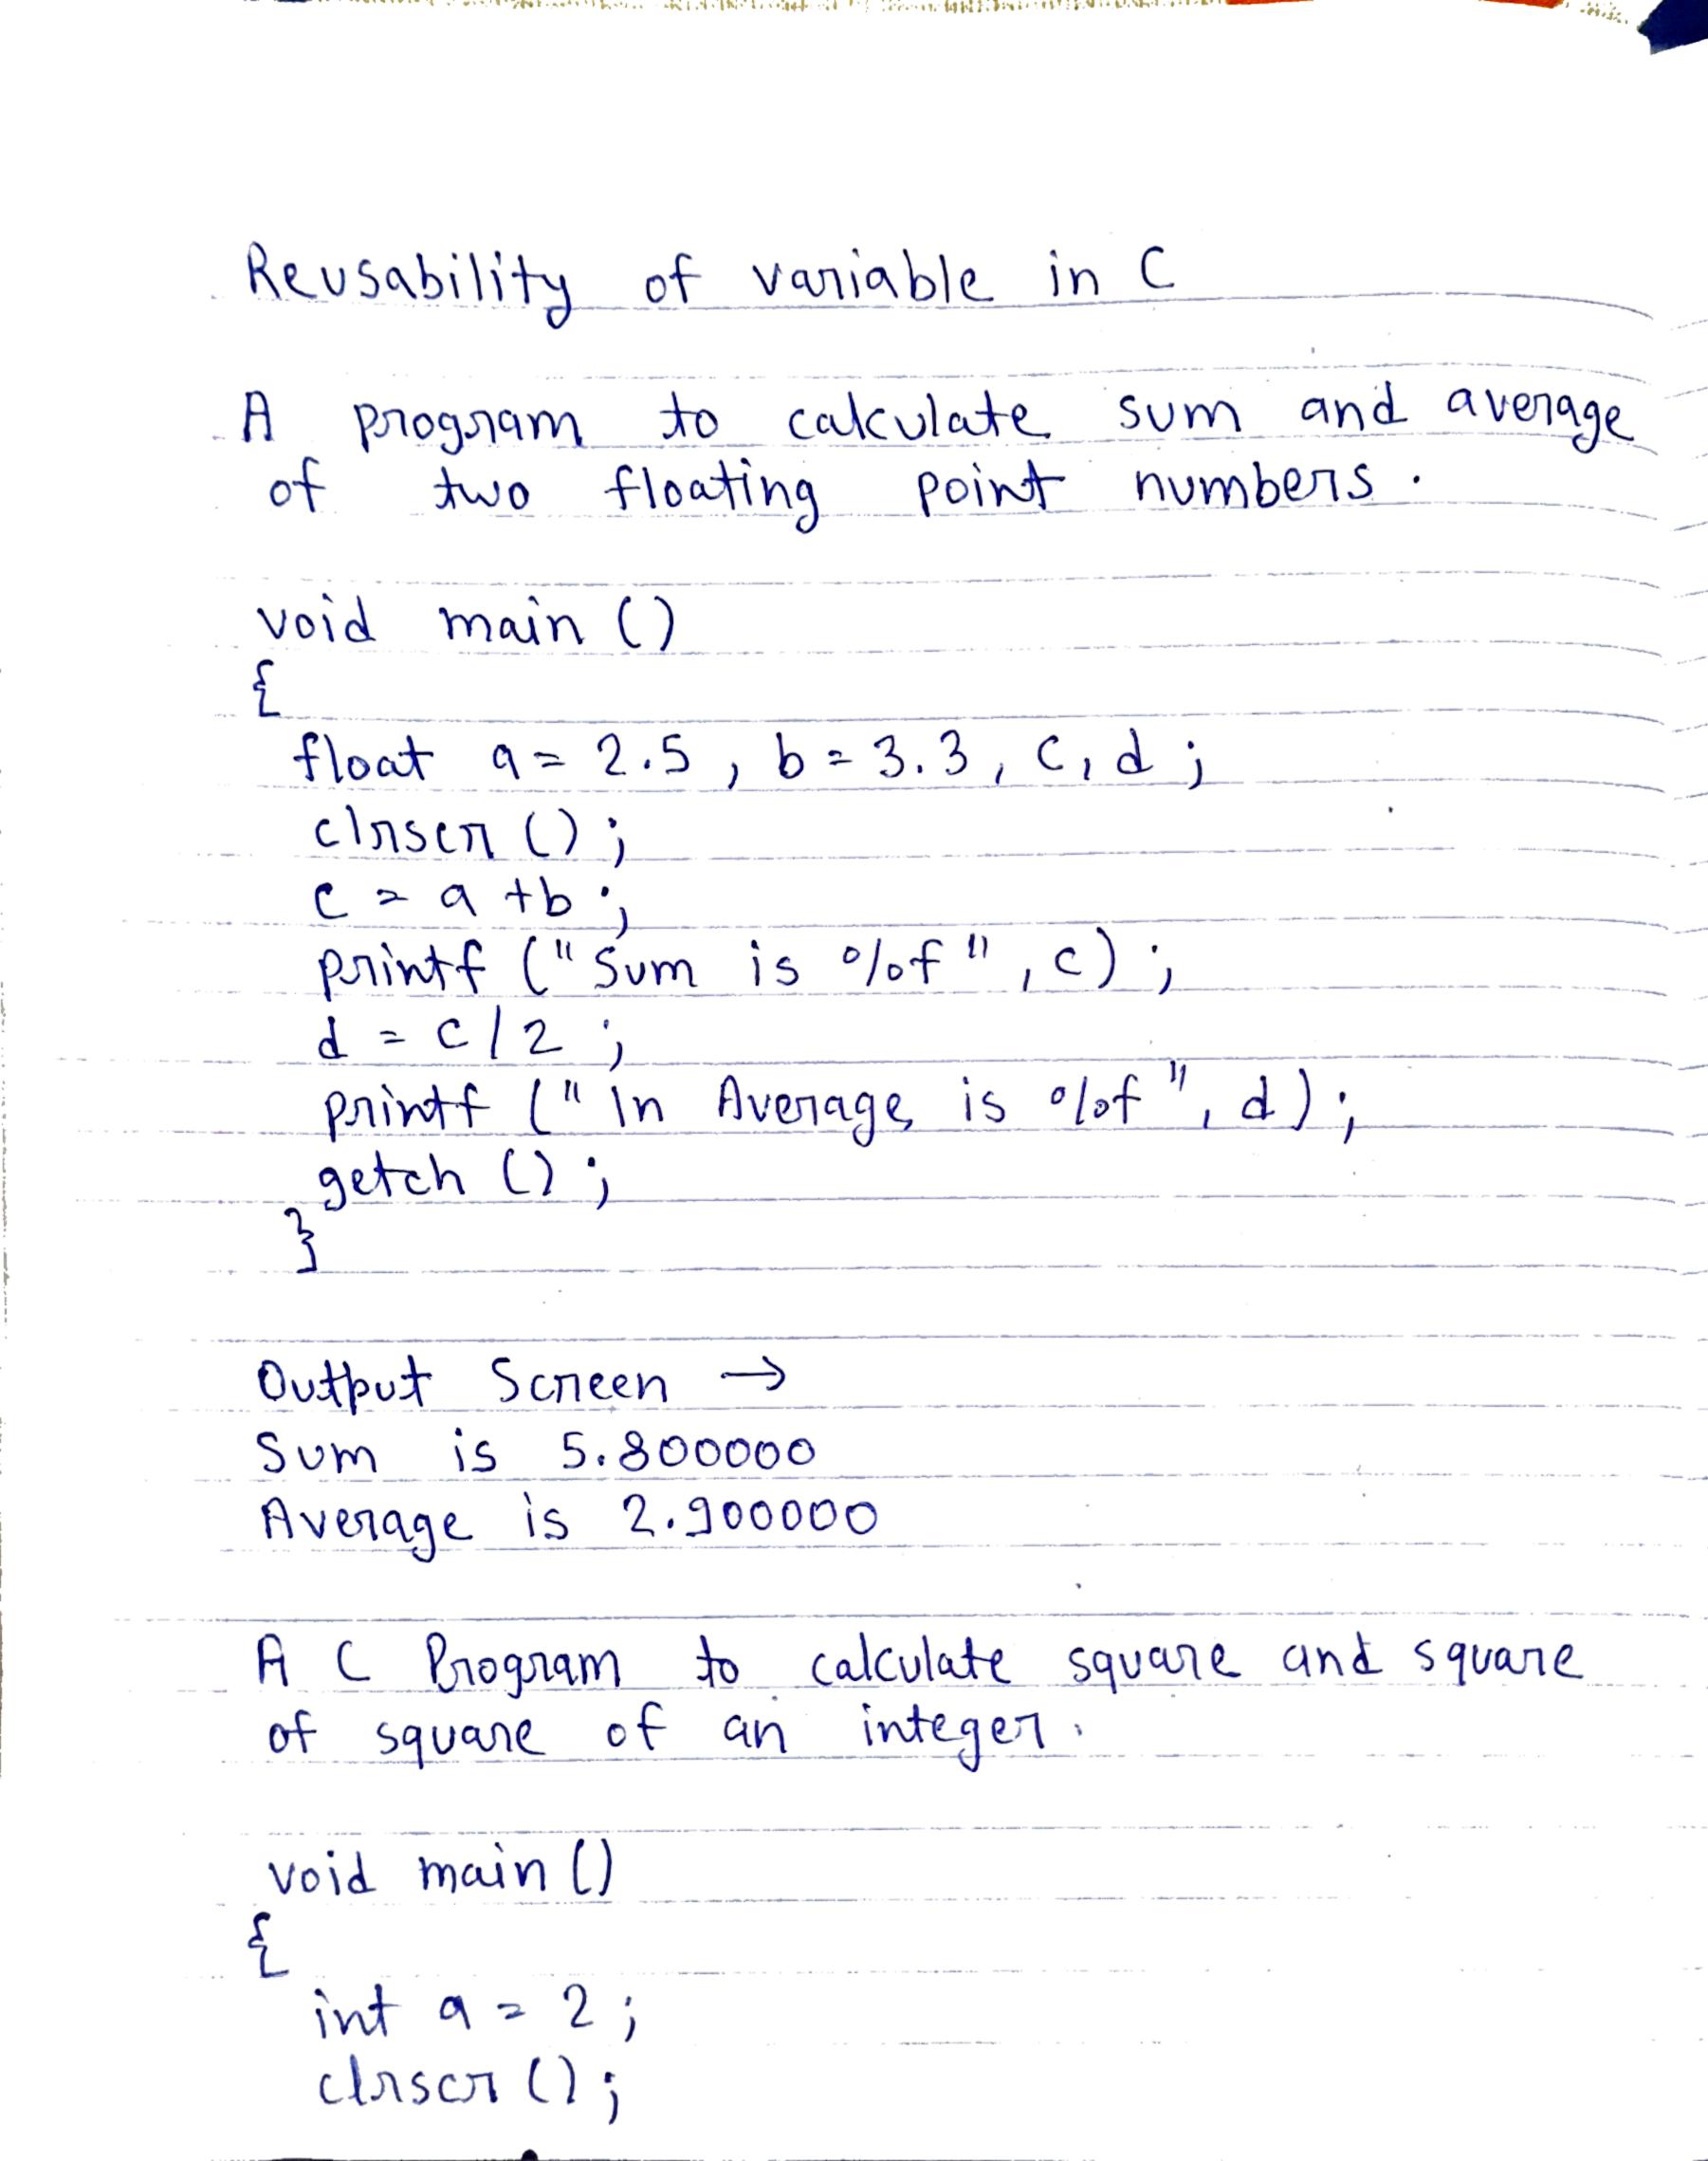 Reusability of variable in C
A program to calculate sum and average
of two floating point numbers.
void main ()
{
float a = 2.5, b = 3.3, c, d;
clrscr ();
c = a + b;
printf ("Sum is %f", c);
d = c/2;
printf ("In Average is %f", d);
getch ();
}
Output Screen →
Sum is 5.800000
Average is 2.900000
A C Program to calculate square and square
of square of an integer.
void main ()
{
int a = 2;
clrscr ();